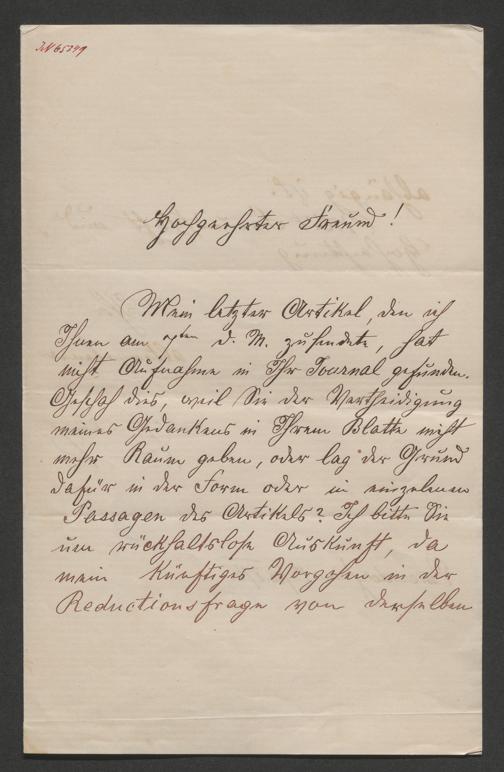 Hochgeehrter Freund!
Mein letzter Artikel, den ich
Ihnen am ten d. M. zusendete, hat
nicht Aufnahme in Ihr Journal gefunden.
Geschah dies, weil Sie der Vertheidigung
meines Gedankens in Ihrem Blatte nicht
mehr Raum geben, oder lag der Grund
dafür in der Form oder in einzelnen
Passagen des Artikels? Ich bitte Sie
um rückhaltslose Auskunft, da
mein künftiges Vorgehen in der
Reductionsfrage von derselben